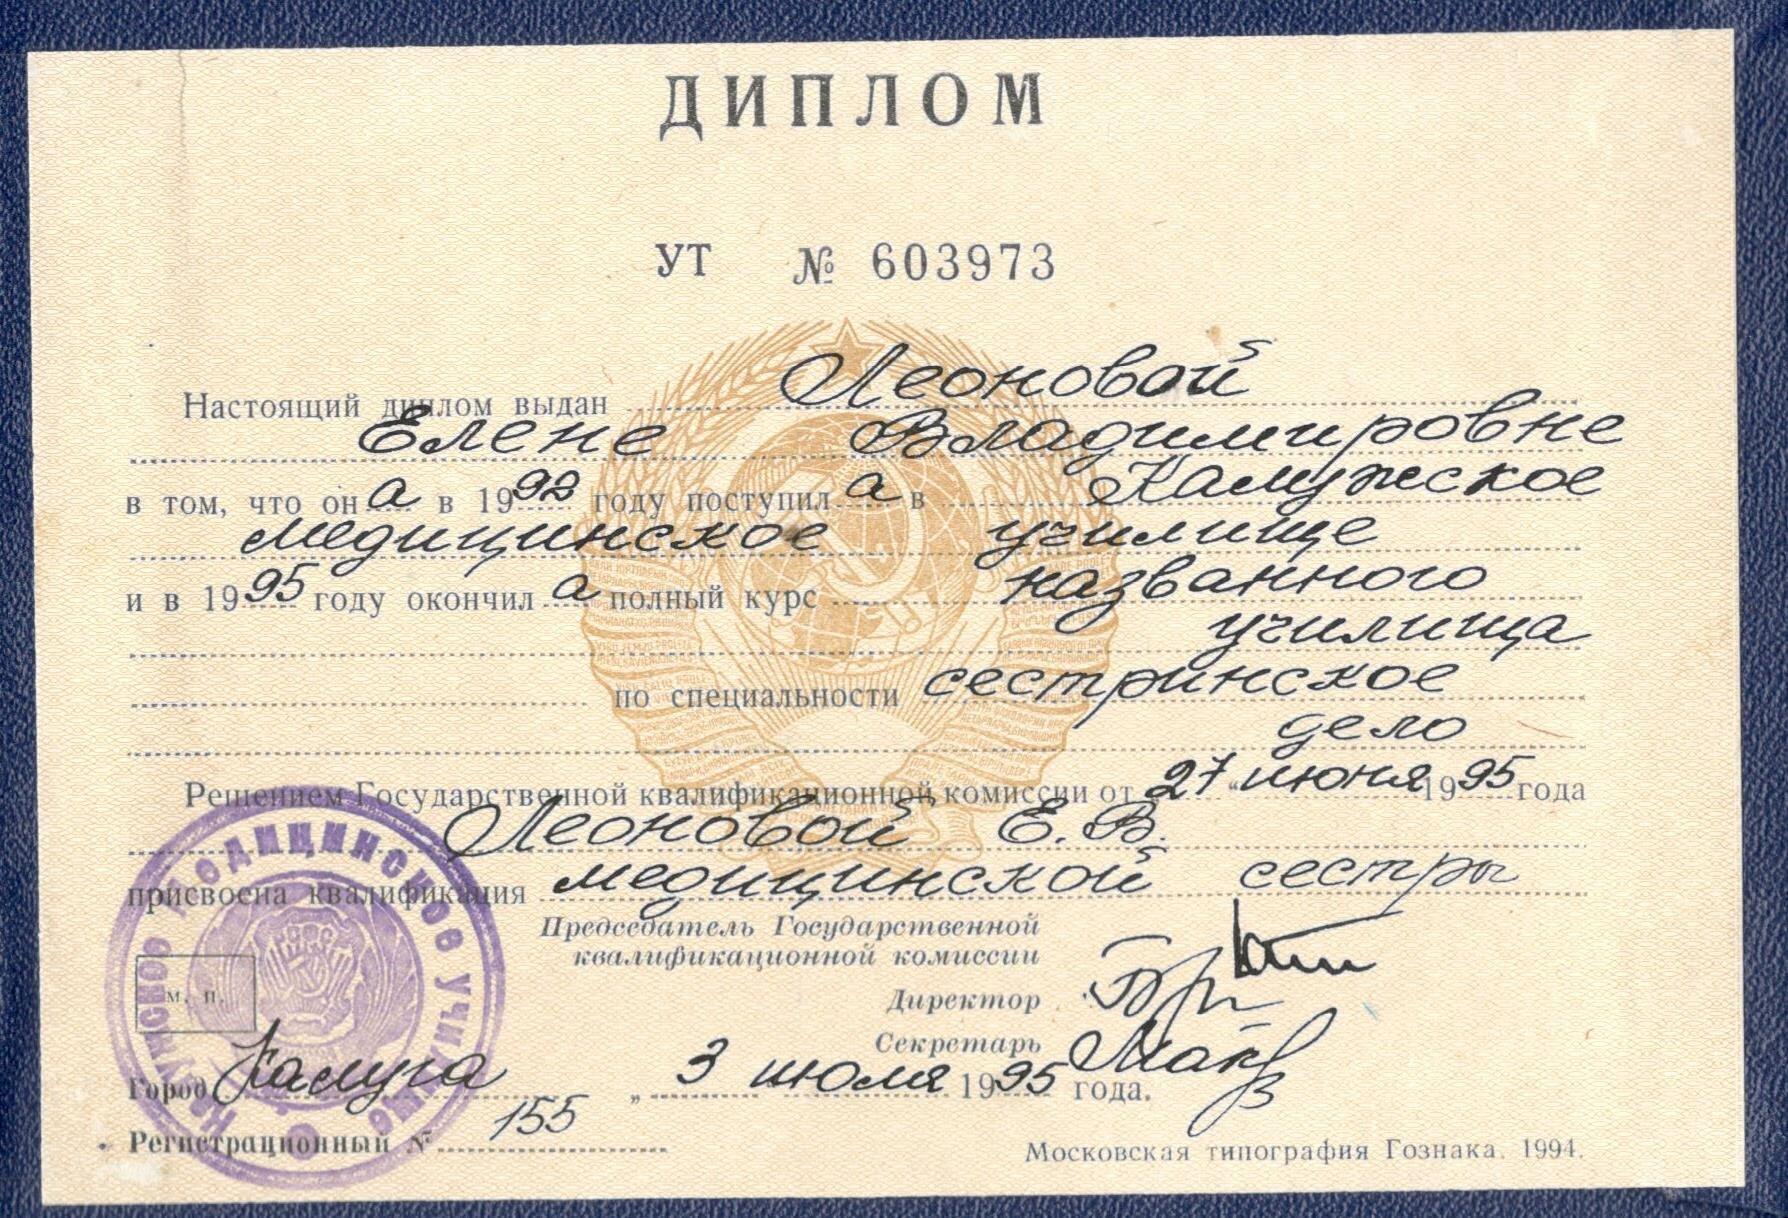 ДИПЛОМ
УТ № 603973
Настоящий диплом выдан Леоновой
Елене Владимировне
в том, что он а в 1992 году поступил а в Калужское
медицинское училище
и в 1995 году окончил а полный курс названного
училища
по специальности сестринское
дело
Решением Государственной квалификационной комиссии от „27“ июня 1995 года
Леоновой Е. В.
присвоена квалификация медицинской сестры
Председатель Государственной
квалификационной комиссии
Директор
Секретарь
м. п.
Калужское медицинское училище
Город Калуга „ 3 июля 1995 года.
Регистрационный № 155
Московская типография Гознака. 1994.